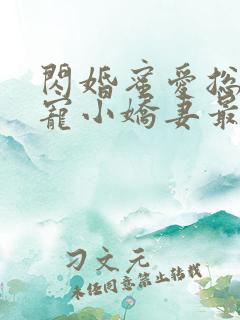 閃婚蜜愛总
寵小嬌妻最
刁文元
未经同意禁止转载